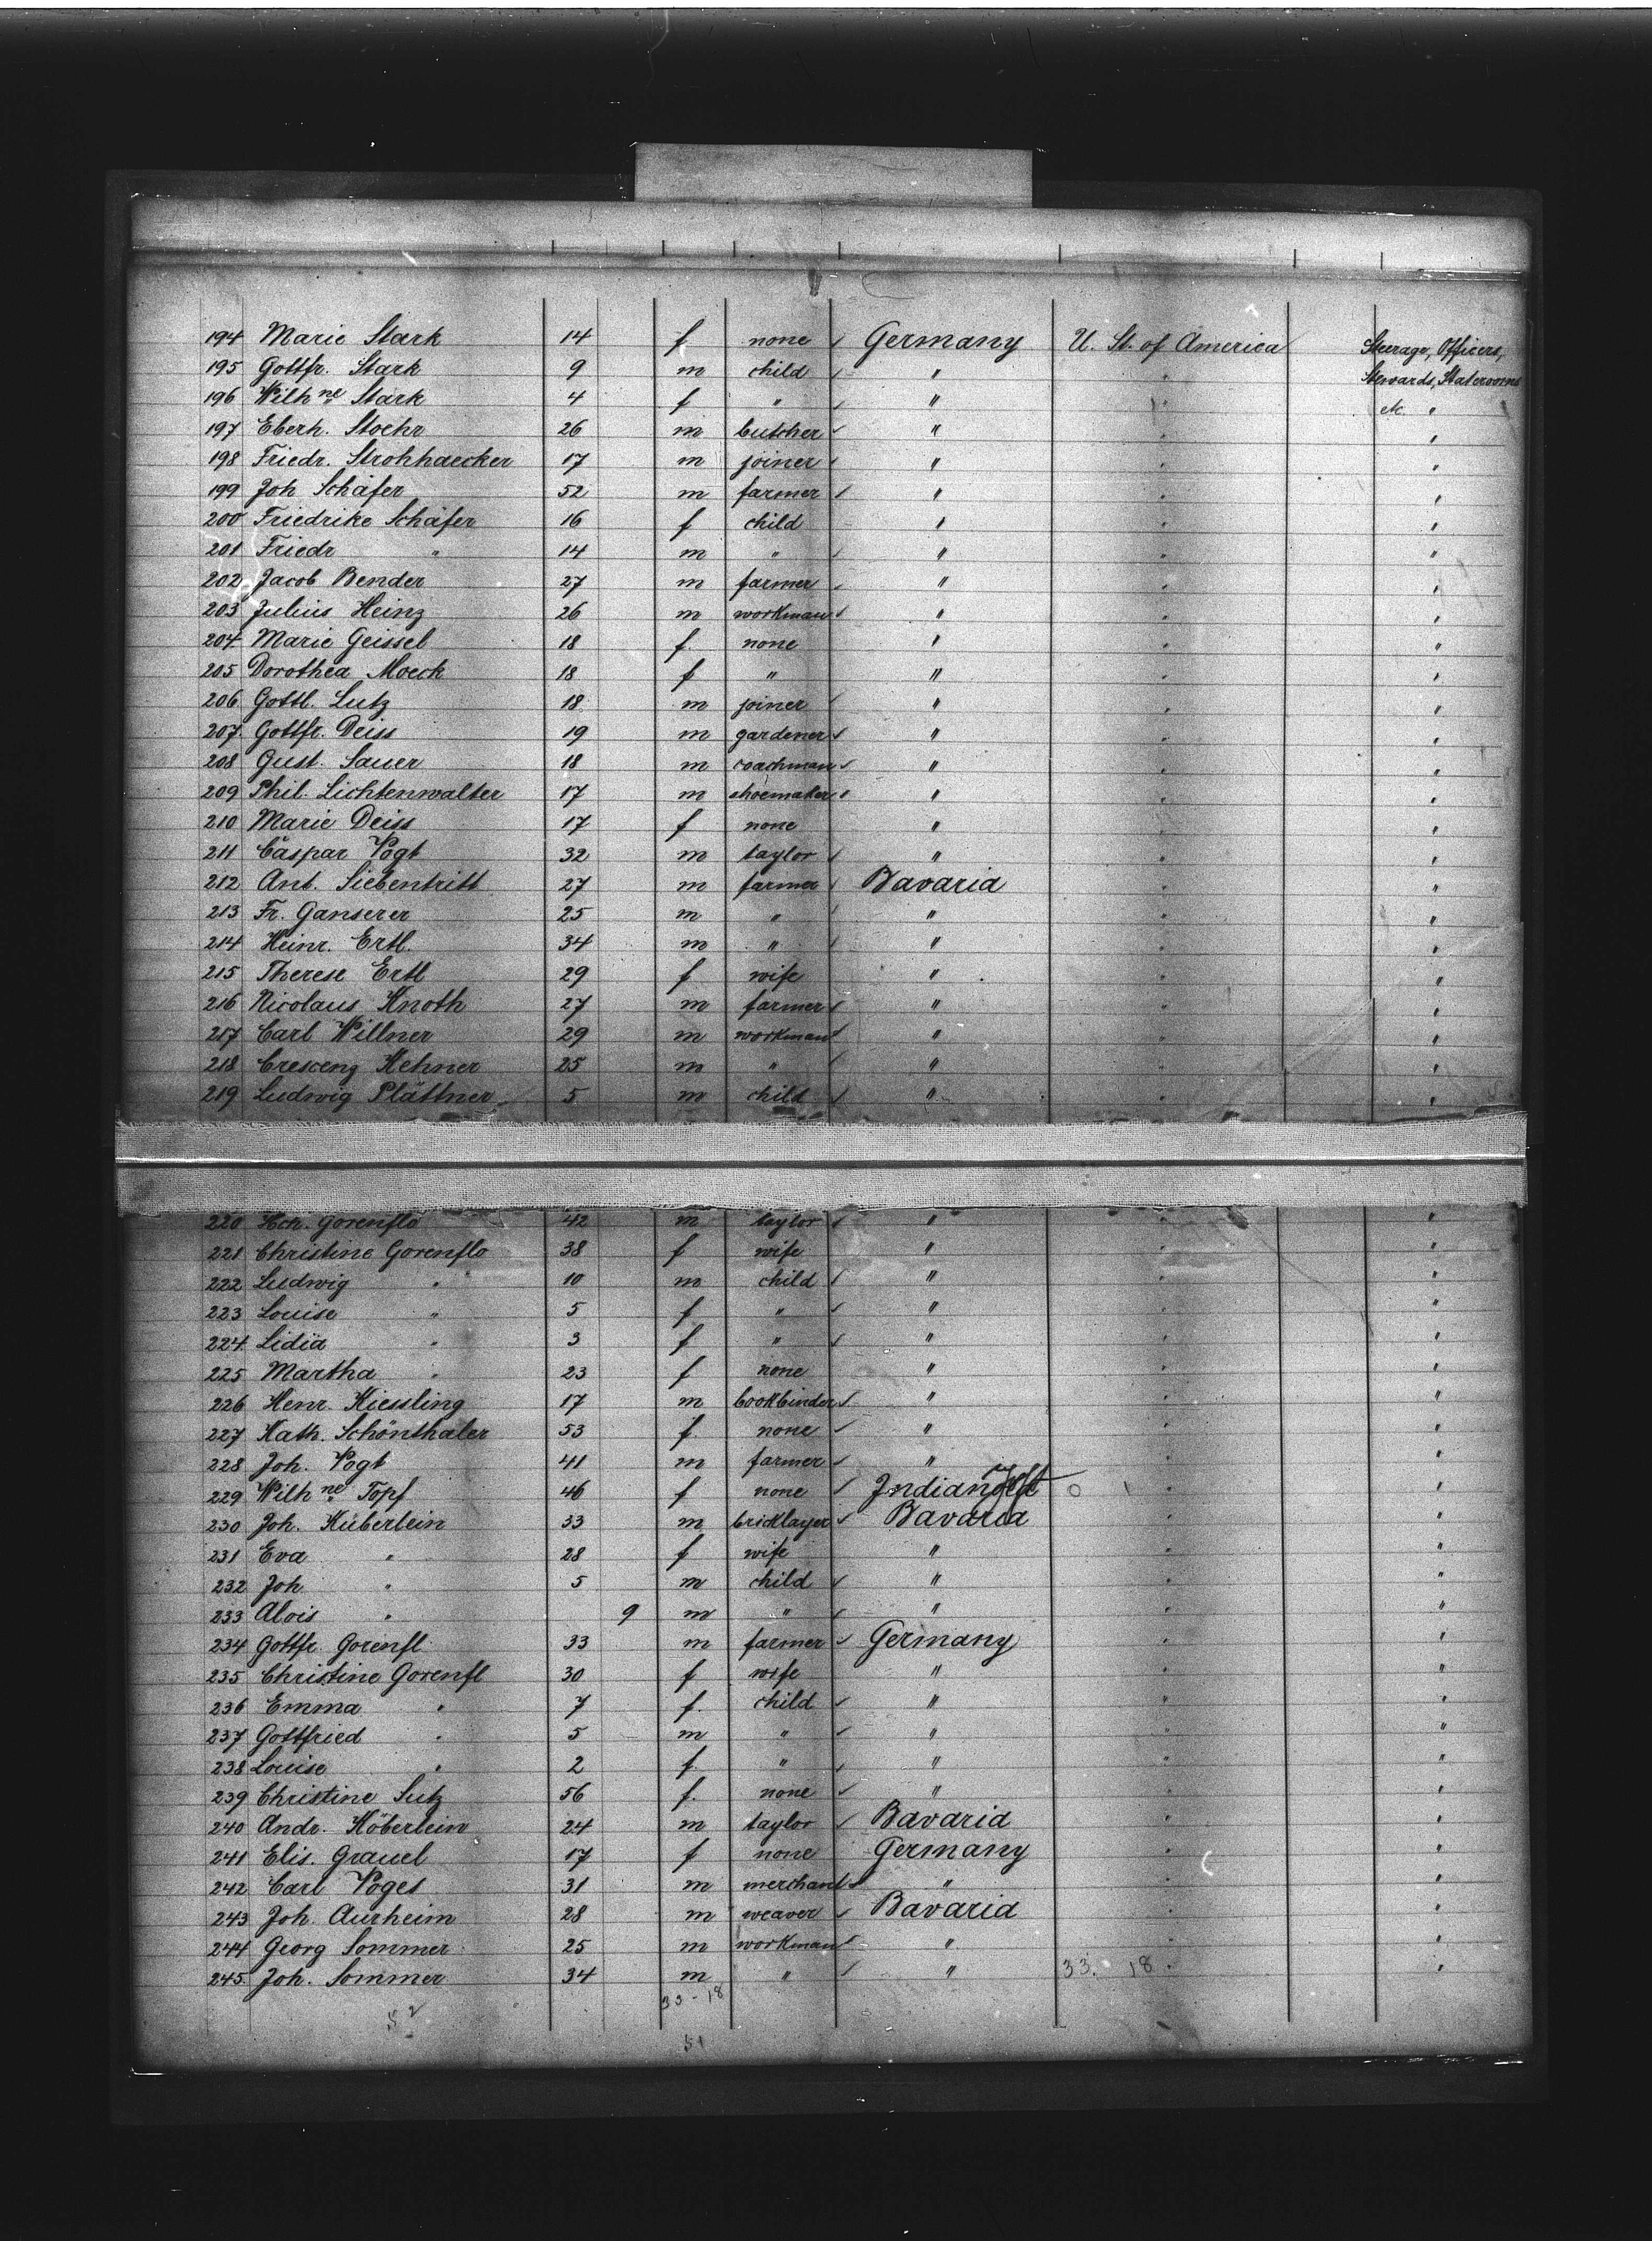 194 Marie Stark 14 f none Germany U. St. of America Steerage, Officers,
195 Gottfr. Stark 9 m child " " Stewards, Staterooms
196 Wilhne Stark 4 f " " " etc. "
197 Eberh. Stoehr 26 m butcher " " "
198 Friedr. Strohhaecker 17 m joiner " " "
199 Joh Schäfer 52 m farmer " " "
200 Friedrike Schäfer 16 f child " " "
201 Friedr " 14 m " " " "
202 Jacob Bender 27 m farmer " " "
203 Julius Heinz 26 m workman " " "
204 Marie Geissel 18 f. none " " "
205 Dorothea Moeck 18 f " " " "
206 Gottl. Lutz 18 m joiner " " "
207 Gottfr. Deiss 19 m gardener " " "
208 Gust. Sauer 18 m coachman " " "
209 Phil. Lichtenwalter 17 m shoemaker " " "
210 Marie Deiss 17 f none " " "
211 Caspar Vogt 32 m taylor " " "
212 Ant. Siebentritt 27 m farmer Bavaria " "
213 Fr. Ganserer 25 m " " " "
214 Heinr. Ertl. 34 m " " " "
215 Therese Ertl 29 f wife " " "
216 Nicolaus Knoth 27 m farmer " " "
217 Carl Willner 29 m workman " " "
218 Crescenz Kehner 25 m " " " "
219 Ludwig Plättner 5 m child " " "
220 Hch. Gorenflo 42 m taylor " " "
221 Christine Gorenflo 38 f wife " " "
222 Ludwig " 10 m child " " "
223 Louise " 5 f " " " "
224 Lidia " 3 f " " " "
225 Martha " 23 f none " " "
226 Henr. Kiessling 17 m bookbinder " " "
227 Kath. Schönthaler 53 f none " " "
228 Joh. Vogt 41 m farmer " " "
229 Wilhne Topf 46 f none 0 1 " "
230 Joh. Küberlein 33 m bricklayer Bavaria " "
231 Eva " 28 f wife " " "
232 Joh. " 5 m child " " "
233 Alois " 9 m " " " "
234 Gottfr. Gorenfl 33 m farmer Germany " "
235 Christine Gorenfl 30 f wife " " "
236 Emma " 7 f. child " " "
237 Gottfried " 5 m " " " "
238 Louise " 2 f. " " " "
239 Christine Lutz 56 f. none " " "
240 Andr. Köberlein 24 m taylor Bavaria " "
241 Elis. Grauel 17 f none Germany " "
242 Carl Voges 31 m merchant " " "
243 Joh. Aurheim 28 m weaver Bavaria " "
244 Georg Sommer 25 m workman " " "
245. Joh. Sommer 34 m " " 33. 18. "
33-18
52
51